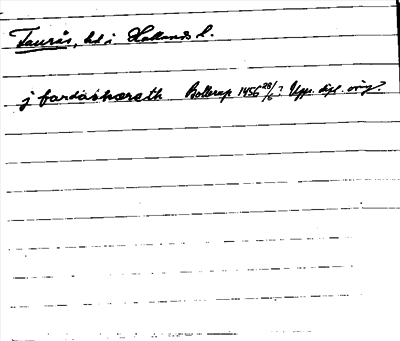 Faurås, hd i Hallands l.
j fardåshæreth Bollerup 1456 28/6? Upps. dipl. orig?